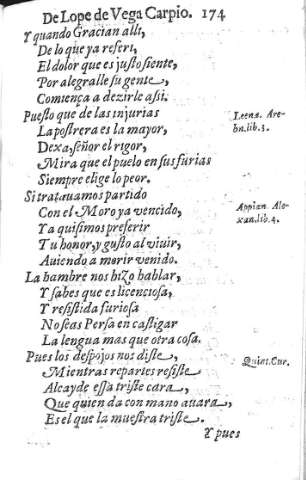 De Lope de Vega Carpio. 174
Y quando Gracian alli,
De lo que ya referi,
El dolor que es justo siente,
Por alegralle su gente,
Comiença a dezirle assi.
Puesto que de las injurias
La postrera es la mayor,
Dexa, señor el rigor,
Mira que el puelo en sus furias
Siempre elige lo peor.
Si tratauamos partido
Con el Moro ya vencido,
Ya quisimos preferir
Tu honor, y gusto al viuir,
Auiendo a morir venido.
La hambre nos hizo hablar,
Y sabes que es licenciosa,
Y resistida furiosa
No seas Persa en castigar
La lengua mas que otra cosa.
Pues los despojos nos diste,
Mientras repartes resiste
Alcayde essa triste cara,
Que quien da con mano auara,
Es el que la muestra triste.
Y pues
Leens. Are-
bn.lib.3.
Appian. Ale-
xan.lib.4.
Quint.Cur.